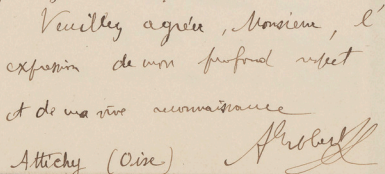 Veuillez agréer, Monsieur, l'
expression de mon profond respect
et de ma vive reconnaissance
Attichy (Oise)